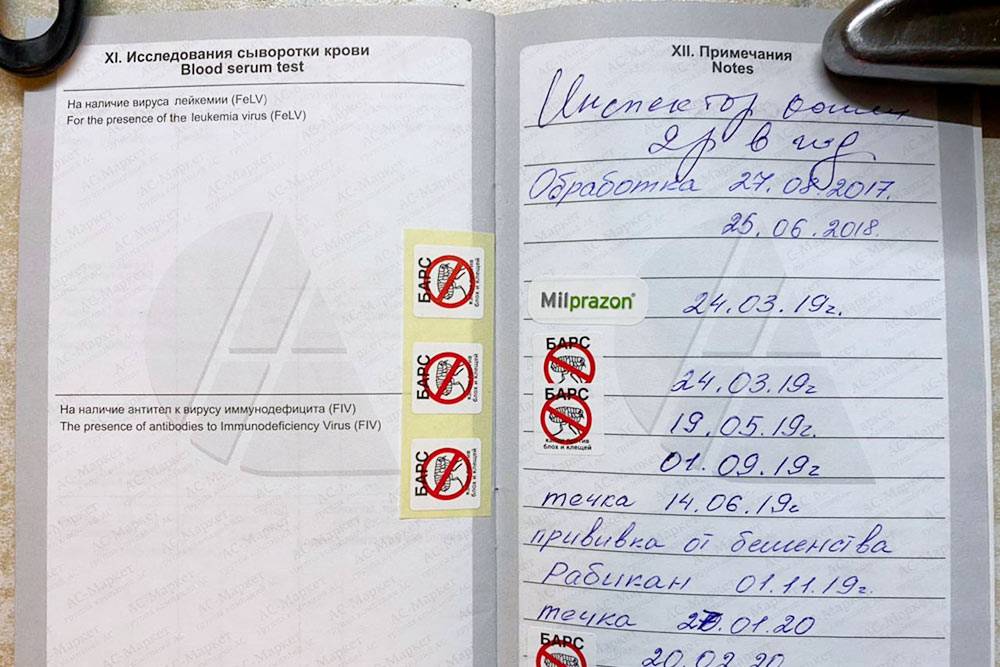 XI. Исследования сыворотки крови
Blood serum test
На наличие вируса лейкемии (FeLV)
For the presence of the leukemia virus (FeLV)
На наличие антител к вирусу иммунодефицита (FIV)
The presence of antibodies to Immunodeficiency Virus (FIV)
БАРС
блох и клещей
БАРС
блох и клещей
БАРС
блох и клещей
XII. Примечания
Notes
Инспектор
2р в год
Обработка 27.08.2017.
25.06.2018.
Milprazon® 24.03.19г.
БАРС
24.03.19г
БАРС
19.05.19г.
капли против
блох и клещей
01.09.19г
течка 14.06.19г
прививка от бешенства
Рабикан 01.11.19г.
течка .01.20
БАРС
20.02.20